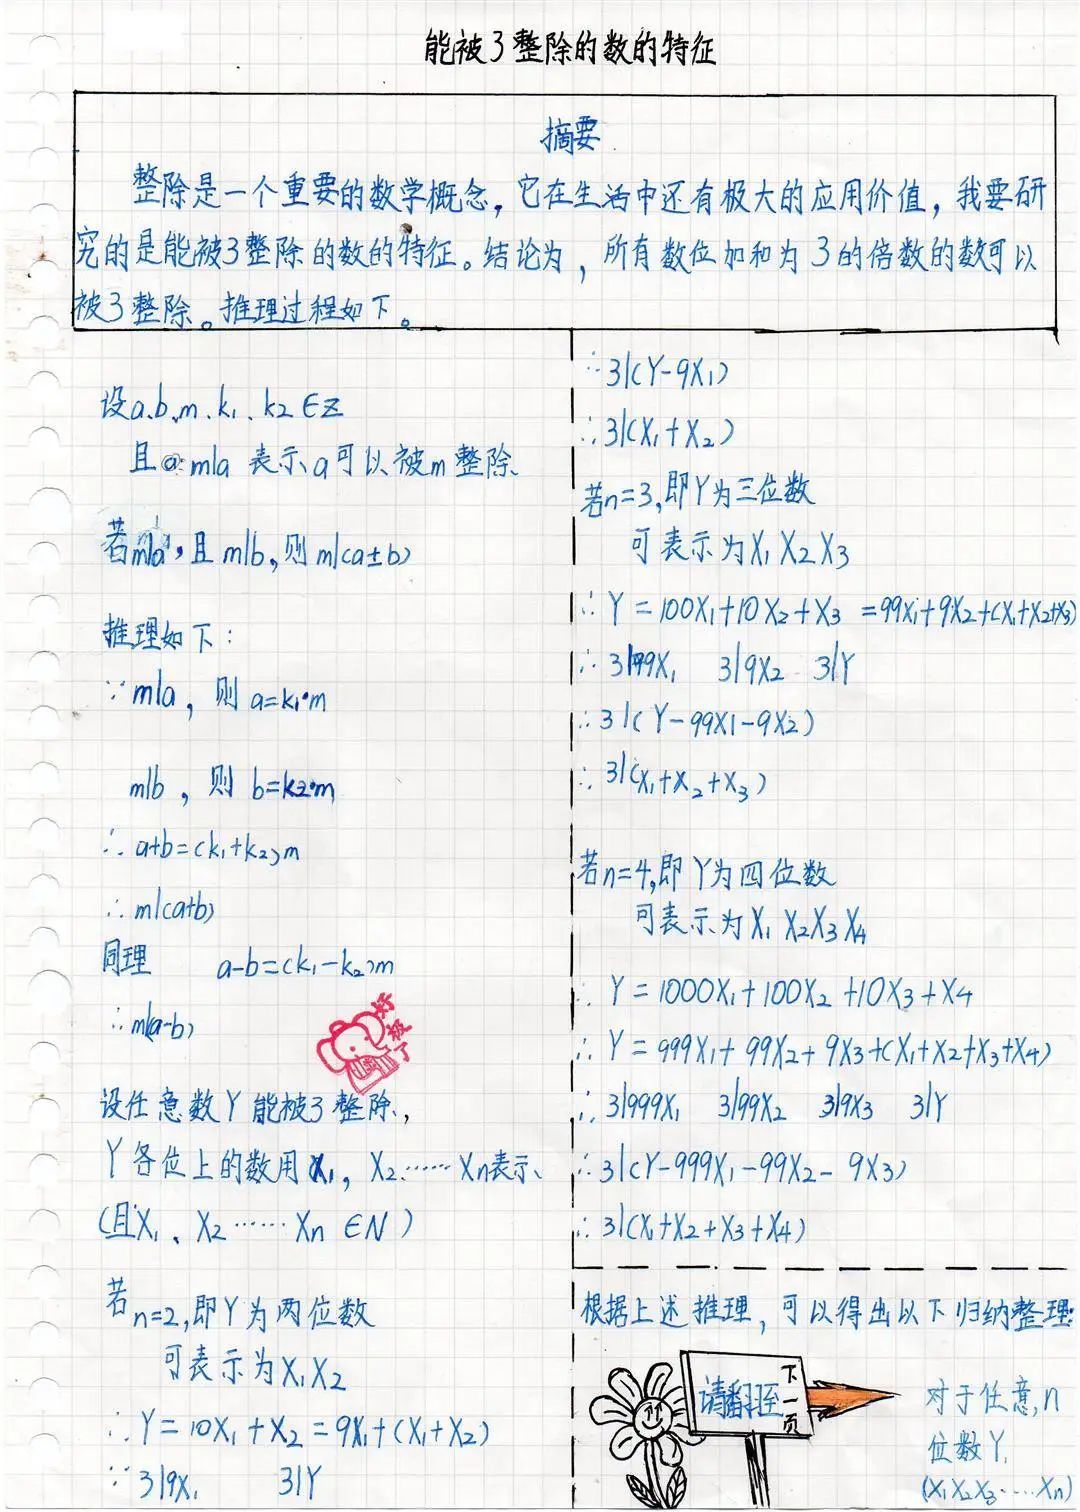 能被3整除的数的特征
摘要
整除是一个重要的数学概念，它在生活中还有极大的应用价值，我要研
究的是能被3整除的数的特征。结论为，所有数位加和为3的倍数的数可以
被3整除。推理过程如下。
设a、b、m、k₁、k₂∈Z
且m|a 表示a可以被m整除、
若m|a，且m|b，则m|(a±b)
推理如下：
∵m|a，则a=k₁·m
m|b，则b=k₂·m
∴a+b=(k₁+k₂)m
∴m|(a+b)
同理 a-b=(k₁-k₂)m
∴m|(a-b)
好极了
设任意数Y能被3整除，
Y各位上的数用X₁，X₂……Xn表示、
(且X₁、X₂……Xn∈N)
若n=2,即Y为两位数
可表示为X₁X₂
∴Y=10X₁+X₂=9X₁+(X₁+X₂)
∵3|9X₁ 3|Y
∴3|(Y-9X₁)
∴3|(X₁+X₂)
若n=3,即Y为三位数
可表示为X₁X₂X₃
∴Y=100X₁+10X₂+X₃=99X₁+9X₂+(X₁+X₂+X₃)
∴3|99X₁ 3|9X₂ 3|Y
∴3|(Y-99X1-9X₂)
∴3|(X₁+X₂+X₃)
若n=4,即Y为四位数
可表示为X₁X₂X₃X₄
∴Y=1000X₁+100X₂+10X₃+X₄
∴Y=999X₁+99X₂+9X₃+(X₁+X₂+X₃+X₄)
∴3|999X₁ 3|99X₂ 3|9X₃ 3|Y
∴3|(Y-999X₁-99X₂-9X₃)
∴3|(X₁+X₂+X₃+X₄)
根据上述推理，可以得出以下归纳整理:
请翻至下一页
对于任意,n
位数Y,
(X₁X₂X₃……Xn)